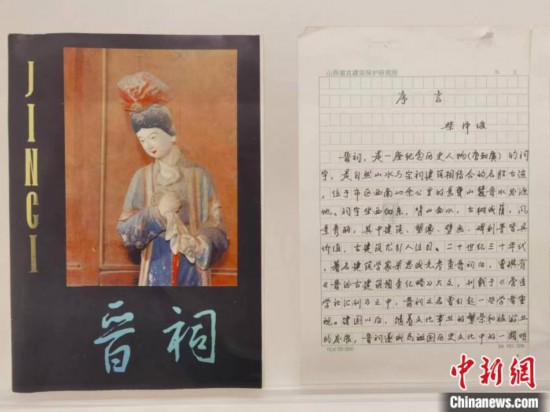 JINCI
晋祠
山西省古建筑保护研究所
序言
柴泽俊
晋祠,是一座纪念历史人物(唐叔虞)的祠
宇,是自然山水与古祠建筑相结合的名胜古迹,
位于市区西南
地。祠宇坐西向东,背山面水,古树成荫,风
景奇丽,其中建筑、塑像、壁画、碑刻
价值,古建筑尤引人注目。二十世纪三十年代,
著名建筑学家梁思成先生考查晋祠后,曾撰有
《晋汾古建筑预查纪略》大文,刊载于《营造
学社汇刊》之中,晋祠之名重
视。建国以后,随着文化事业的繁荣和旅游业
的发展,晋祠遂成为祖国历史文化中的一颗明
中新网
Chinanews.com